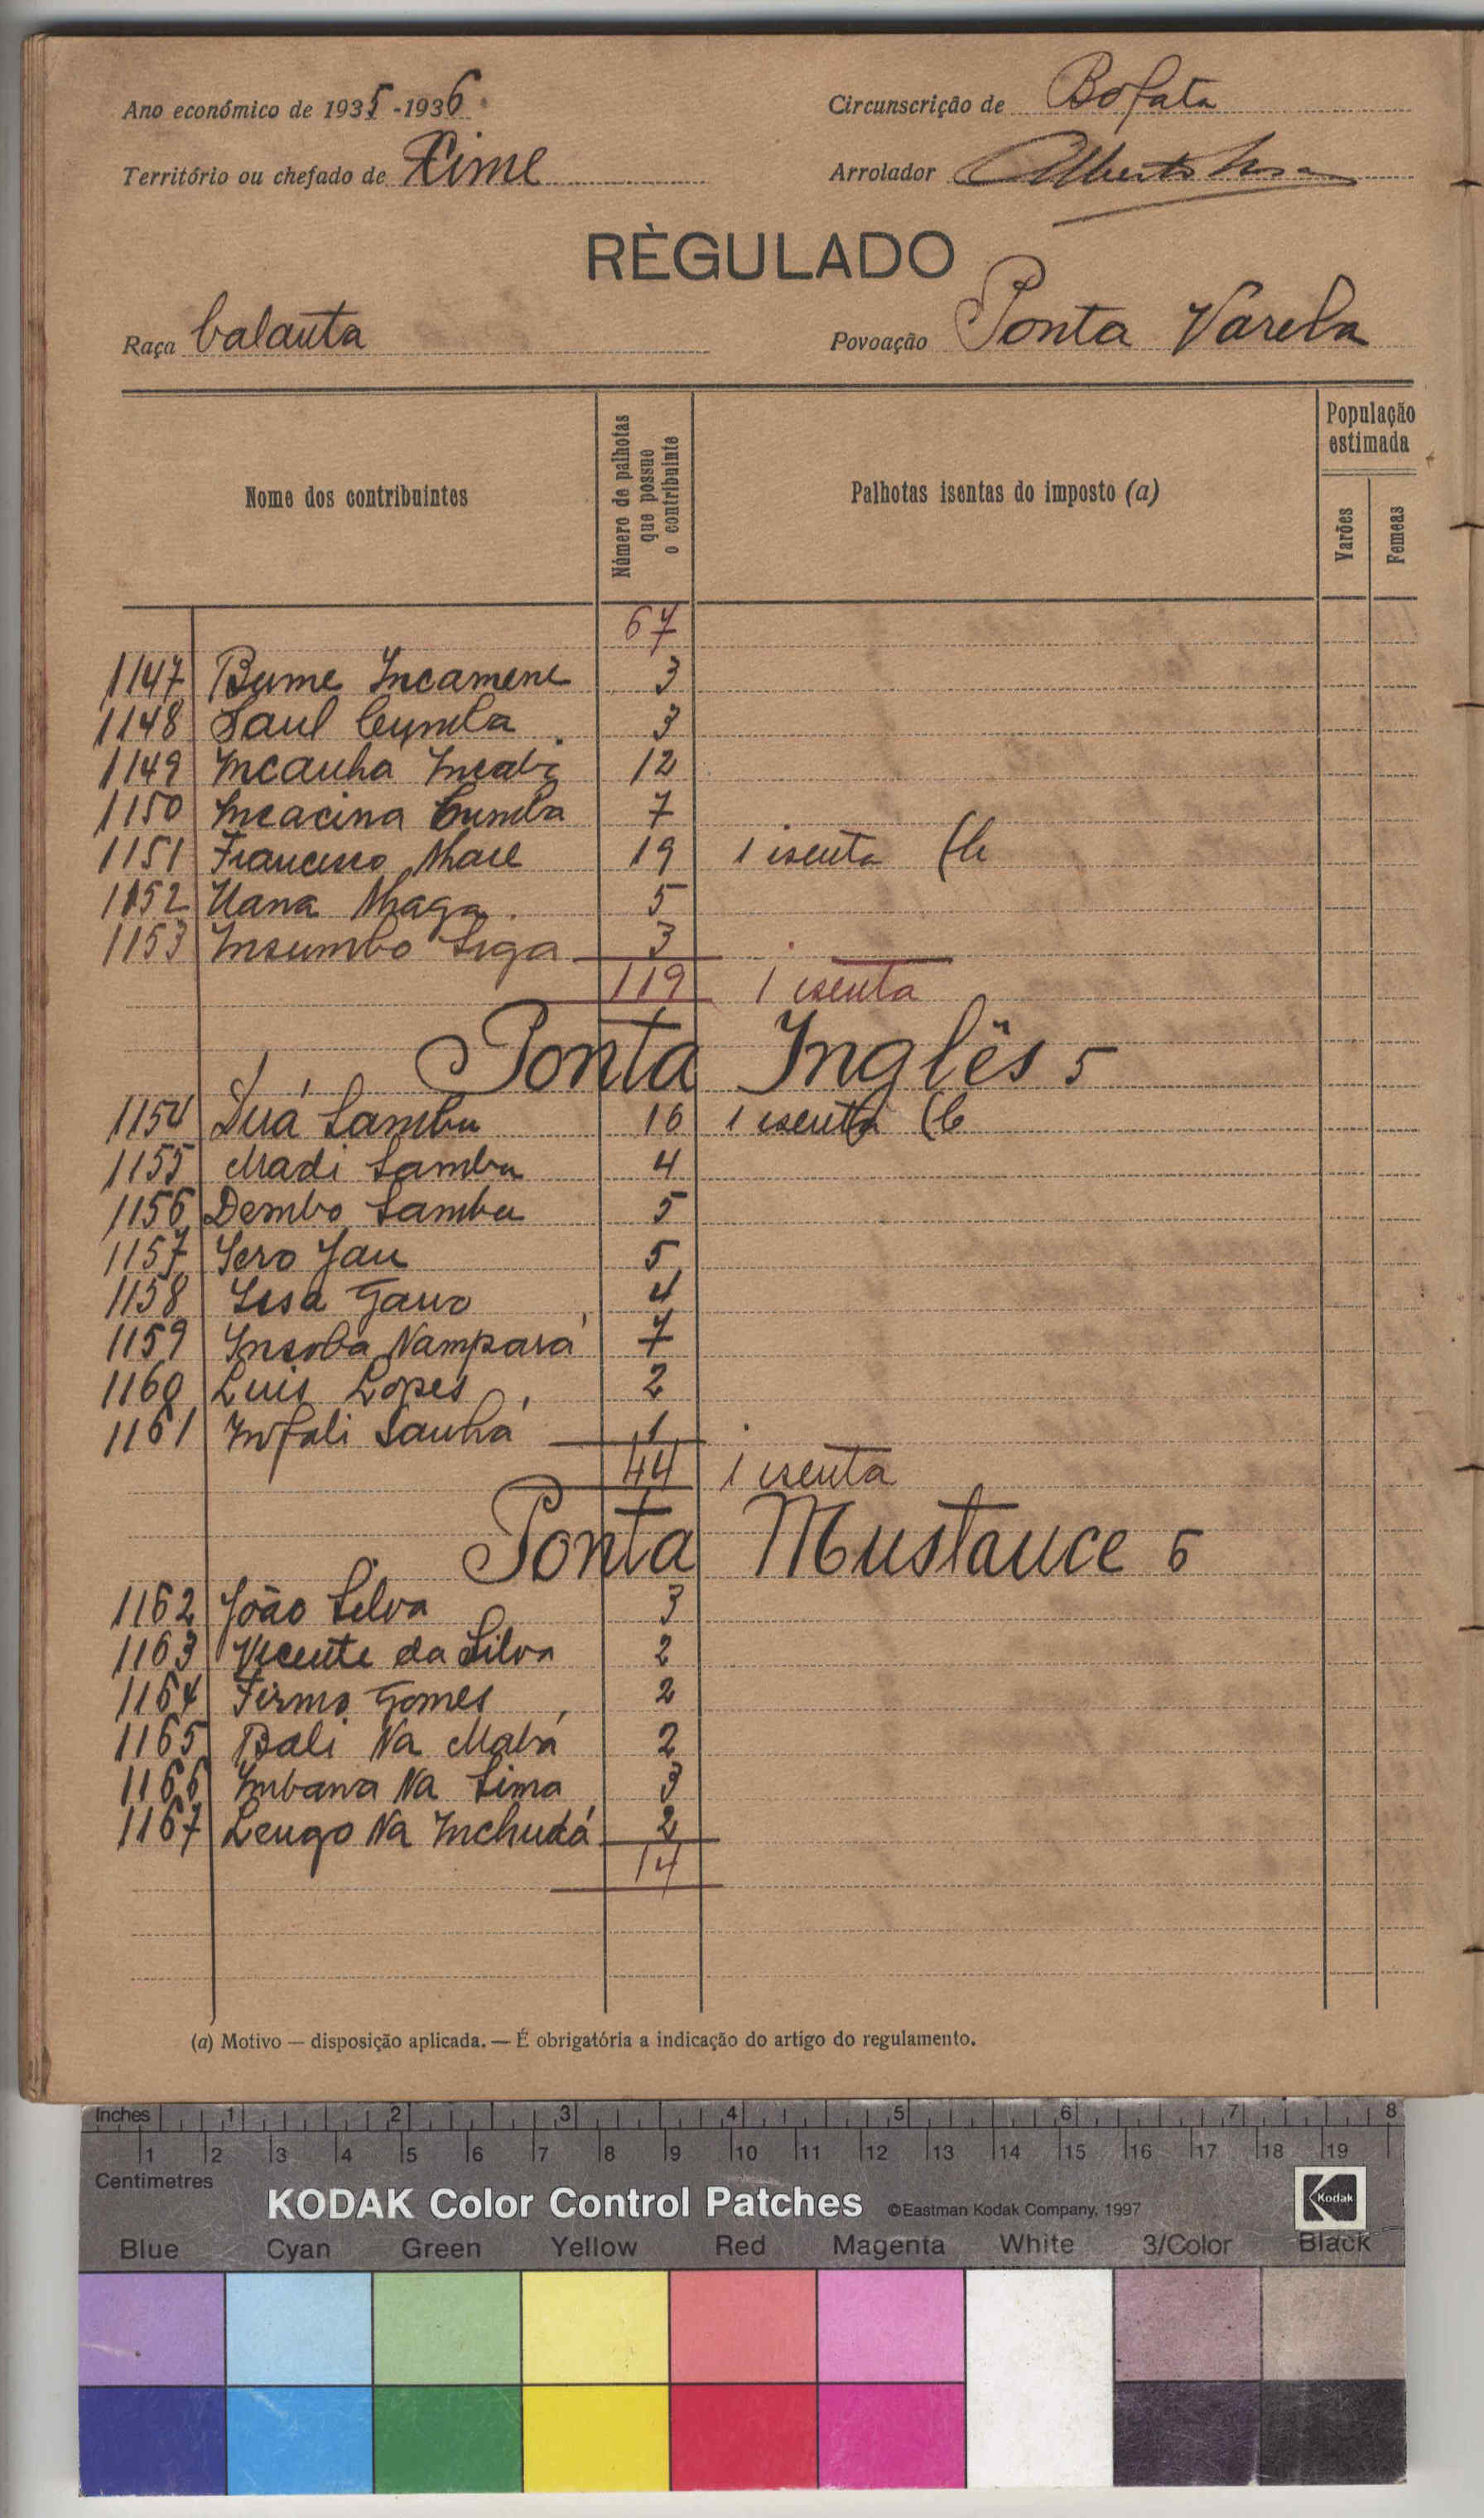 Ano económico de 1935-1936 Circunscrição de Bafata
Território ou chefado de Xime Arrolador Alberto
RÈGULADO
Raça balanta Povoação Ponta Varela
Nome dos contribuintes Número de palhotas que possue o contribuinte Palhotas isentas do imposto (a) População estimada Varões Femeas
67
1147 Bume Incamene 3
1148 Saul Cumba 3
1149 Incanha Incabi 12
1150 Incacina Cumba 7
1151 Francisco Mané 19 1 isenta (b
1152 Uana Nhaga 5
1153 Insumbo Siga 3
119 1 isenta
Ponta Inglês 5
1154 Duá Sambu 16 1 isenta (b
1155 Madi Sambu 4
1156 Dembo Sambu 5
1157 Sero Jau 5
1158 Issa Gano 4
1159 Insoba Nampará 7
1160 Luis Lopes 2
1161 Infali Sanhá 1
44 1 isenta
Ponta Mustance 6
1162 João Silva 3
1163 Vicente da Silva 2
1164 Firmo Gomes 2
1165 Bali Na Mabá 2
1166 Imbana Na Sima 3
1167 Lengo Na Inchudá 2
14
(a) Motivo — disposição aplicada. — É obrigatória a indicação do artigo do regulamento.
Inches 1 2 3 4 5 6 7 8
1 2 3 4 5 6 7 8 9 10 11 12 13 14 15 16 17 18 19
Centimetres
KODAK Color Control Patches ©Eastman Kodak Company, 1997 Kodak
Blue Cyan Green Yellow Red Magenta White 3/Color Black